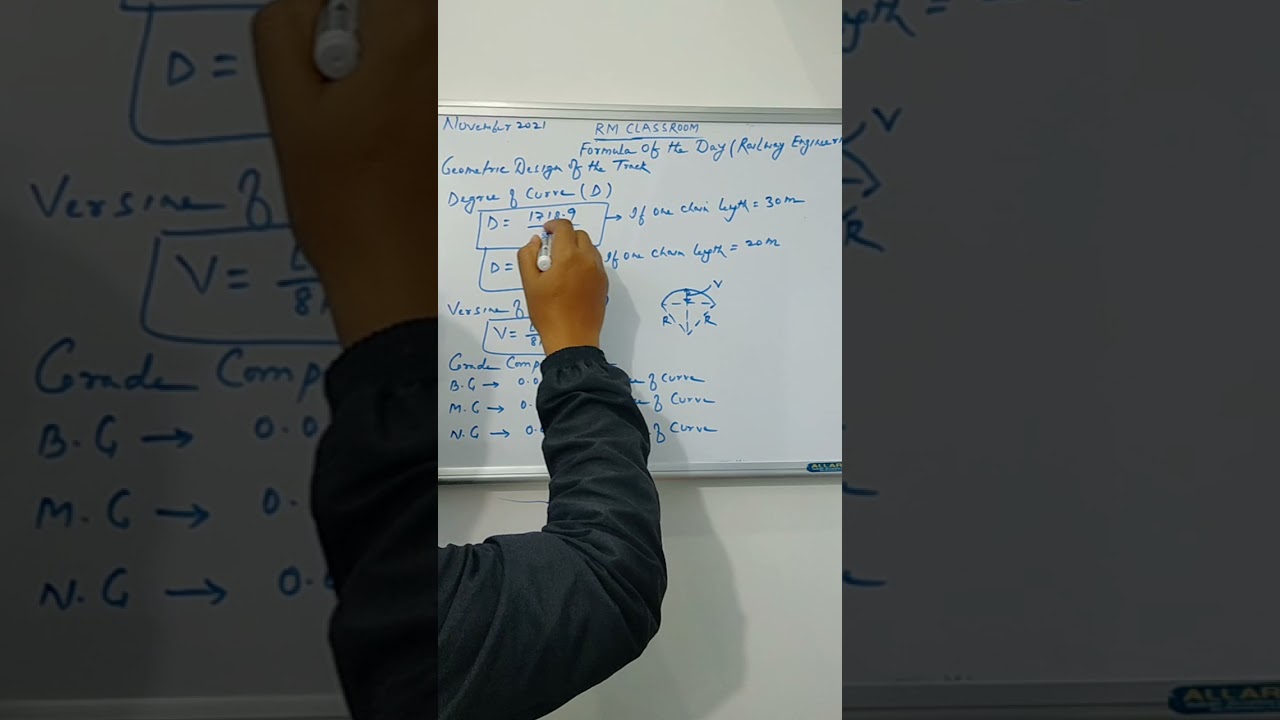 November 2021 RM CLASSROOM
Formula Of the Day (Railway Engineeri
Geometric Design of the Track
Degree of Curve (D)
D = 1718.9 → If one chain length = 30m
D = If one chain length = 20m
Versine of
V =
V
R R
Grade Comp
B.G → 0.0 of Curve
M.G → 0. of Curve
N.G → 0.0 of Curve
ALLAR